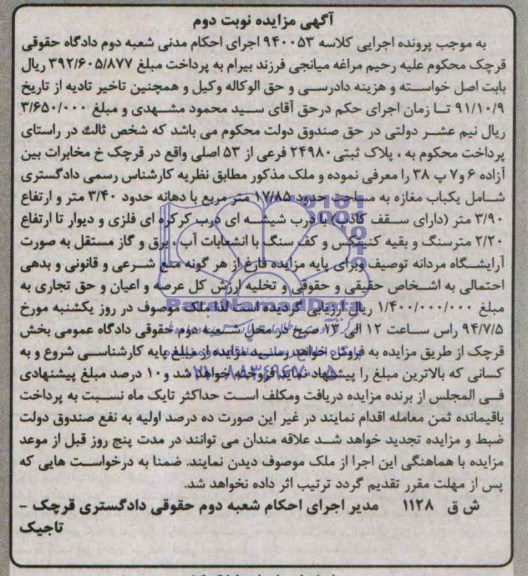 آگهی مزایده نوبت دوم
به موجب پرونده اجرایی کلاسه ۹۴۰۰۵۳ اجرای احکام مدنی شعبه دوم دادگاه حقوقی
قرچک محکوم علیه رحیم مراغه میانجی فرزند بیرام به پرداخت مبلغ ۳۹۲/۶۰۵/۸۷۷ ریال
بابت اصل خواسته و هزینه دادرسی و حق الوکاله وکیل و همچنین تاخیر تادیه از تاریخ
۹۱/۱۰/۹ تا زمان اجرای حکم درحق آقای سید محمود مشهدی و مبلغ ۳/۶۵۰/۰۰۰
ریال نیم عشر دولتی در حق صندوق دولت محکوم می باشد که شخص ثالث در راستای
پرداخت محکوم به ، پلاک ثبتی ۲۴۹۸۰ فرعی از ۵۳ اصلی واقع در قرچک خ مخابرات بین
آزاده ۶ و۷ پ ۳۸ را معرفی نموده و ملک مذکور مطابق نظریه کارشناس رسمی دادگستری
شامل یکباب مغازه به مساحت حدود ۱۷/۸۵ متر مربع با دهانه حدود ۳/۴۰ متر و ارتفاع
۳/۹۰ متر (دارای سقف کاذب) با درب شیشه ای درب کرکره ای فلزی و دیوار تا ارتفاع
۲/۲۰ مترسنگ و بقیه کنیتکس و کف سنگ با انشعابات آب ، برق و گاز مستقل به صورت
آرایشگاه مردانه توصیف وبرای پایه مزایده فارغ از هر گونه منع شرعی و قانونی و بدهی
احتمالی به اشخاص حقیقی و حقوقی و تخلیه ارزش کل عرصه و اعیان و حق تجاری به
مبلغ ۱/۴۰۰/۰۰۰/۰۰۰ ریال ارزیابی گردیده است لذا ملک موصوف در روز یکشنبه مورخ
۹۴/۷/۵ راس ساعت ۱۲ الی ۱۳ صبح در محل شعبه دوم حقوقی دادگاه عمومی بخش
قرچک از طریق مزایده به فروش خواهد رسید مزایده از مبلغ پایه کارشناسی شروع و به
کسانی که بالاترین مبلغ را پیشنهاد نماید فروخته خواهد شد و۱۰ درصد مبلغ پیشنهادی
فی المجلس از برنده مزایده دریافت ومکلف است حداکثر تایک ماه نسبت به پرداخت
باقیمانده ثمن معامله اقدام نمایند در غیر این صورت ده درصد اولیه به نفع صندوق دولت
ضبط و مزایده تجدید خواهد شد علاقه مندان می توانند در مدت پنج روز قبل از موعد
مزایده با هماهنگی این اجرا از ملک موصوف دیدن نمایند. ضمنا به درخواست هایی که
پس از مهلت مقرر تقدیم گردد ترتیب اثر داده نخواهد شد.
ش ق ۱۱۲۸ مدیر اجرای احکام شعبه دوم حقوقی دادگستری قرچک –
تاجیک
ParsNamadData
۰۲۱-۸۸۳۴۹۶۷۰-۵